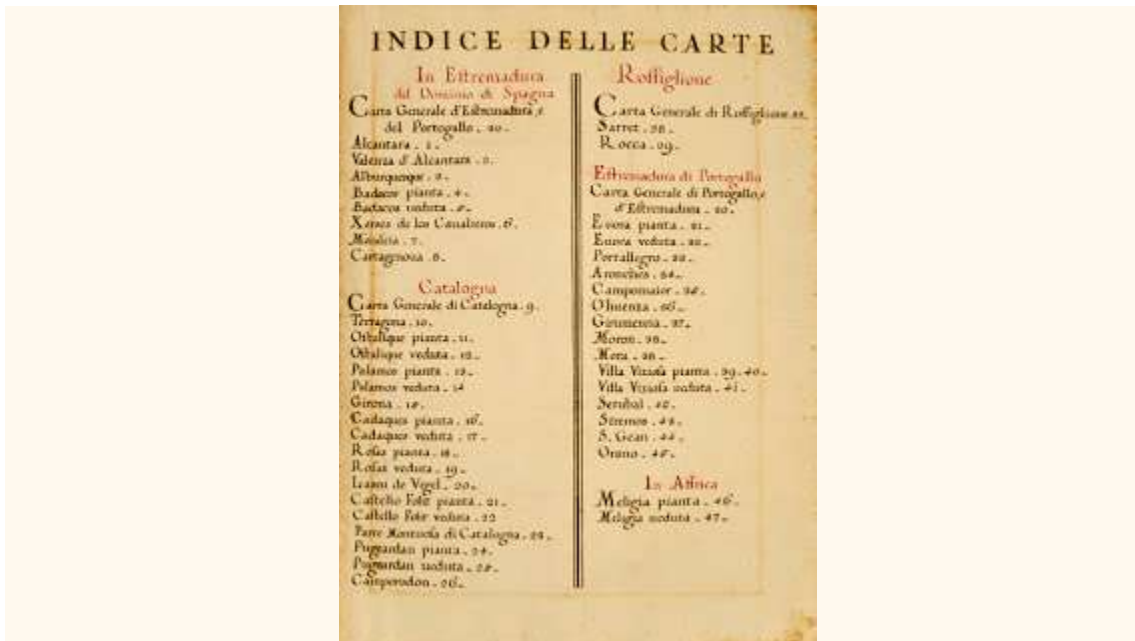 INDICE DELLE CARTE
In Estremadura
del Dominio di Spagna
Carta Generale d'Estremadura, e
del Portogallo . 20 .
Alcantara . 1 .
Valenza d'Alcantara . 2 .
Alburquerque . 3 .
Badacos pianta . 4 .
Badacos ueduta . 5 .
Xeres de los Caualieros . 6 .
. 7 .
Cartagenoua . 8 .
Catalogna
Carta Generale di Catalogna . 9 .
Terragona . 10 .
Ostalique pianta . 11 .
Ostalique veduta . 12 .
Palamos pianta . 13 .
Palamos veduta . 14
Girona . 15 .
Cadaques pianta . 16 .
Cadaques veduta . 17 .
Rosas pianta . 18 .
Rosas veduta . 19 .
de Vegel . 20 .
Castello Folit pianta . 21 .
Castello Folit veduta . 22
Parte Montuosa di Catalogna . 23 .
Puycardan pianta . 24 .
Puycardan ueduta . 25 .
Camperodon . 26 .
Rossiglione
Carta Generale di Rossiglione
Sarret . 28 .
Rocca . 29 .
Estremadura di Portogallo
Carta Generale di Portogallo, e
d'Estremadura . 20 .
Euora pianta . 31 .
Euora veduta . 32 .
Portallegro . 33 .
Aronches . 34 .
Campomaior . 35 .
Oliuenza . 36 .
. 37 .
Moron . 38 .
Mora . 38 .
Villa Viziosa pianta . 39 . 40 .
Villa Viziosa ueduta . 41 .
Setubal . 42 .
Stremos . 43 .
S. Gean . 44 .
. 45 .
In Affrica
Meligia pianta . 46 .
Meligia ueduta . 47 .